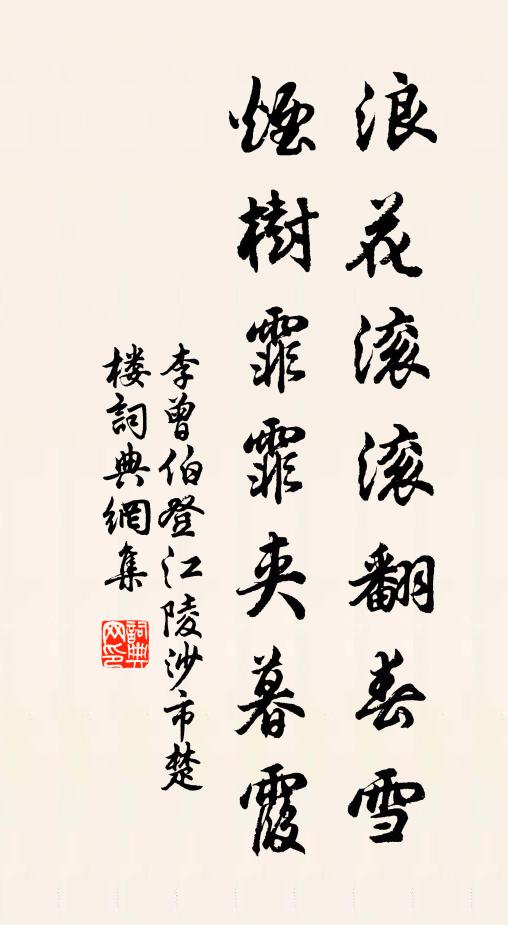 浪花滚滚翻春雪
煙樹霏霏夹暮霞
李曾伯登江陵沙市楚
楼詞典網集
詞典网印